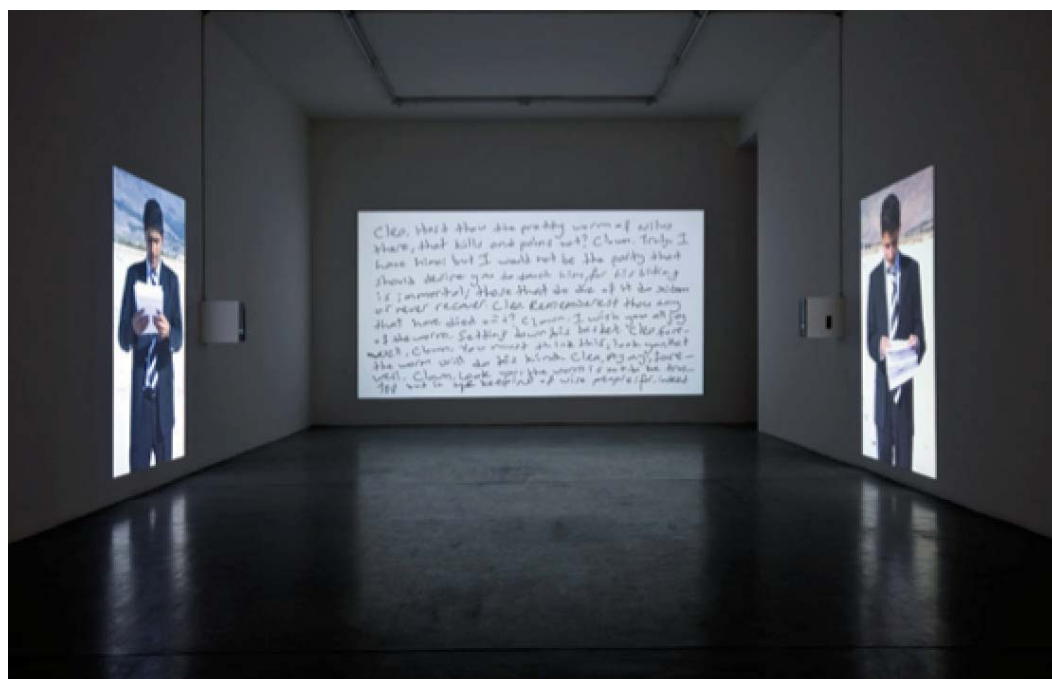 Cleo. Hast thou the pretty worm of nilus
there, that kills and pains not? Clown. Truly I
have him: but I would not be the party that
should desire you to touch him, for his biding
is immortal; those that do die of it do seldom
or never recover. Cleo. Rememberest thou any
that have died of it? Clown. I wish you all joy
of the worm. Setting down his basket Cleo fare-
well. Clown. You must think this, look you, that
the worm will do his kind. Cleo, Ay, ay; fare-
well. Clown. Look you, the worm is not to be trus-
Ted but in the keeping of wise people; for, indeed